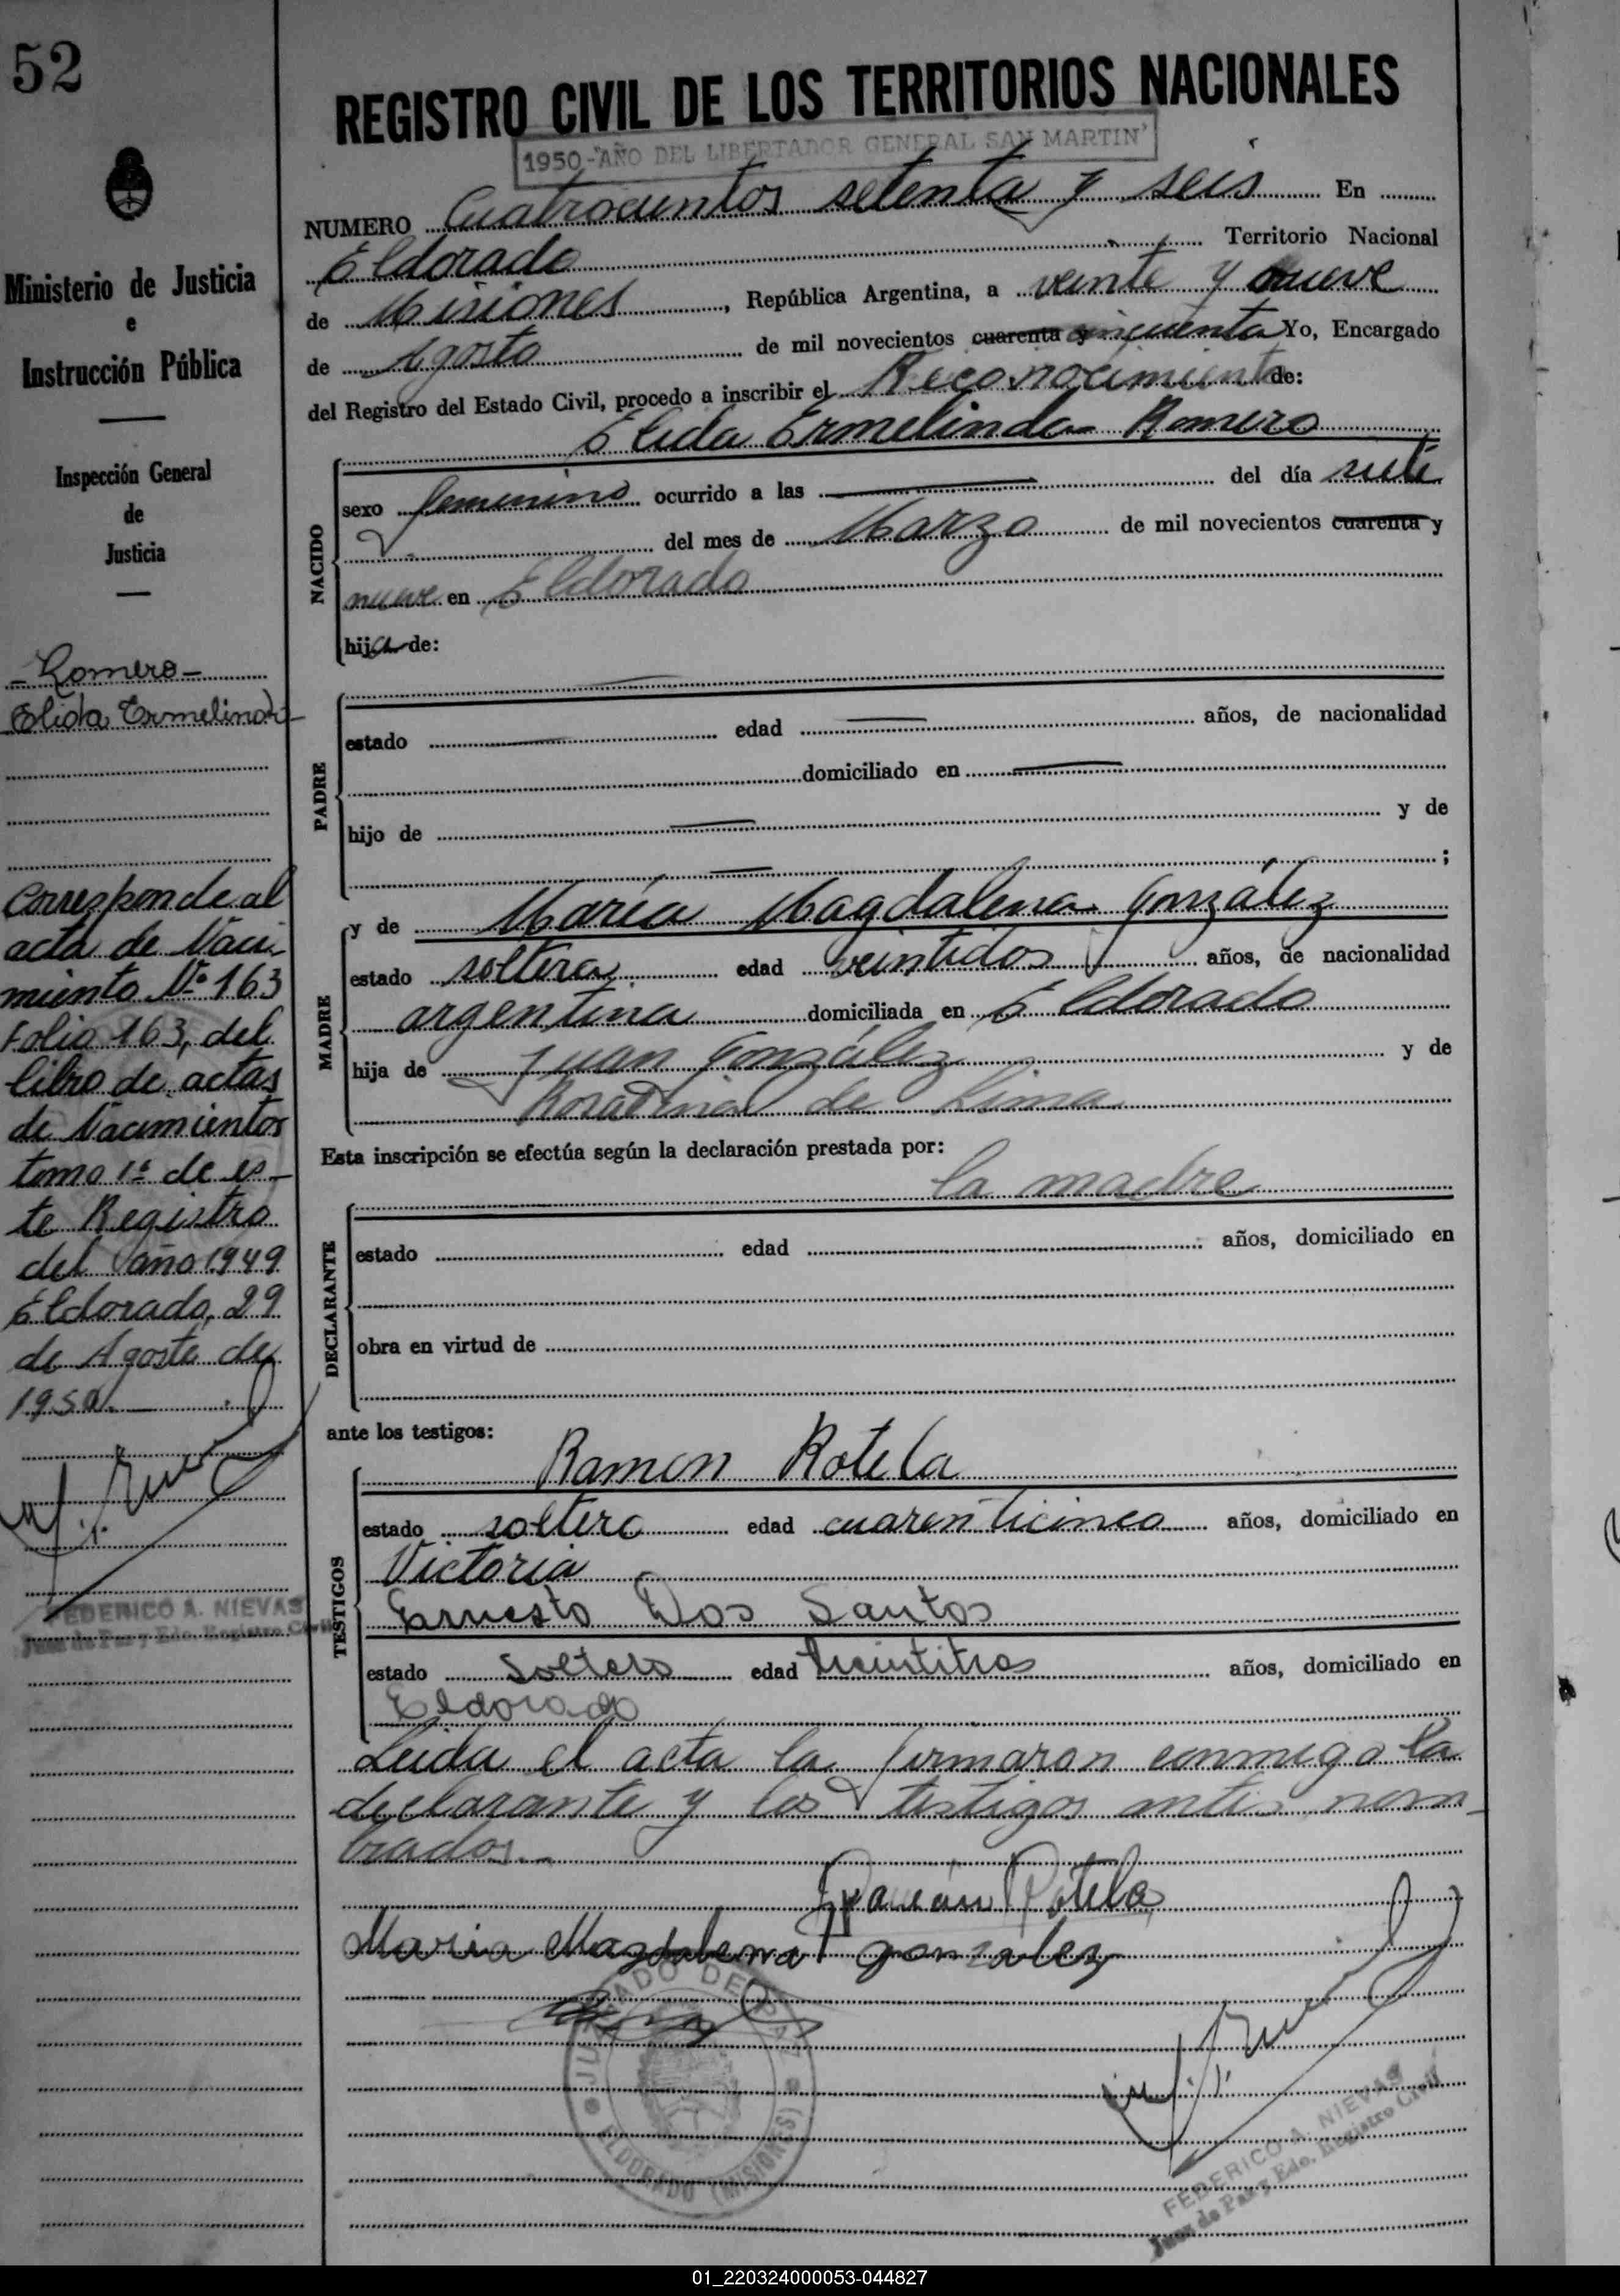 52
Ministerio de Justicia
e
Instrucción Pública
Inspección General
de
Justicia
- Romero -
Elida Ermelinda
Corresponde al
acta de Naci-
miento Nº 163
Folio 163, del
libro de actas
de Nacimientos
tomo 1º de es-
te Registro
del año 1949
Eldorado, 29
de Agosto de
1950.
FEDERICO A. NIEVAS
Juez de Paz y Edo. Registro Civil
REGISTRO CIVIL DE LOS TERRITORIOS NACIONALES
1950-"AÑO DEL LIBERTADOR GENERAL SAN MARTIN"
NUMERO Cuatrocientos setenta y seis En
Eldorado Territorio Nacional
de Misiones, República Argentina, a veinte y nueve
de Agosto de mil novecientos cuarenta y cincuenta Yo, Encargado
del Registro del Estado Civil, procedo a inscribir el Reconocimiento de:
Elida Ermelinda Romero
NACIDO
sexo femenino ocurrido a las del día siete
del mes de Marzo de mil novecientos cuarenta y
nueve en Eldorado
hija de:
PADRE
estado edad años, de nacionalidad
domiciliado en
hijo de y de
;
MADRE
y de María Magdalena González
estado soltera edad veintidos años, de nacionalidad
argentina domiciliada en Eldorado
hija de Juan González y de
de Lima
Esta inscripción se efectúa según la declaración prestada por:
la madre
DECLARANTE
estado edad años, domiciliado en
obra en virtud de
ante los testigos:
TESTIGOS
Ramon Rotela
estado soltero edad cuarenticinco años, domiciliado en
Victoria
Ernesto Dos Santos
estado soltero edad años, domiciliado en
Eldorado
Leida el acta la firmaron conmigo la
declarante y los testigos antes nom-
brados.-
Ramón Rotela
Maria Magdalena gonzalez
JUZGADO DE PAZ
ELDORADO (MISIONES)
FEDERICO A. NIEVAS
Juez de Paz y Edo. Registro Civil
01_220324000053-044827